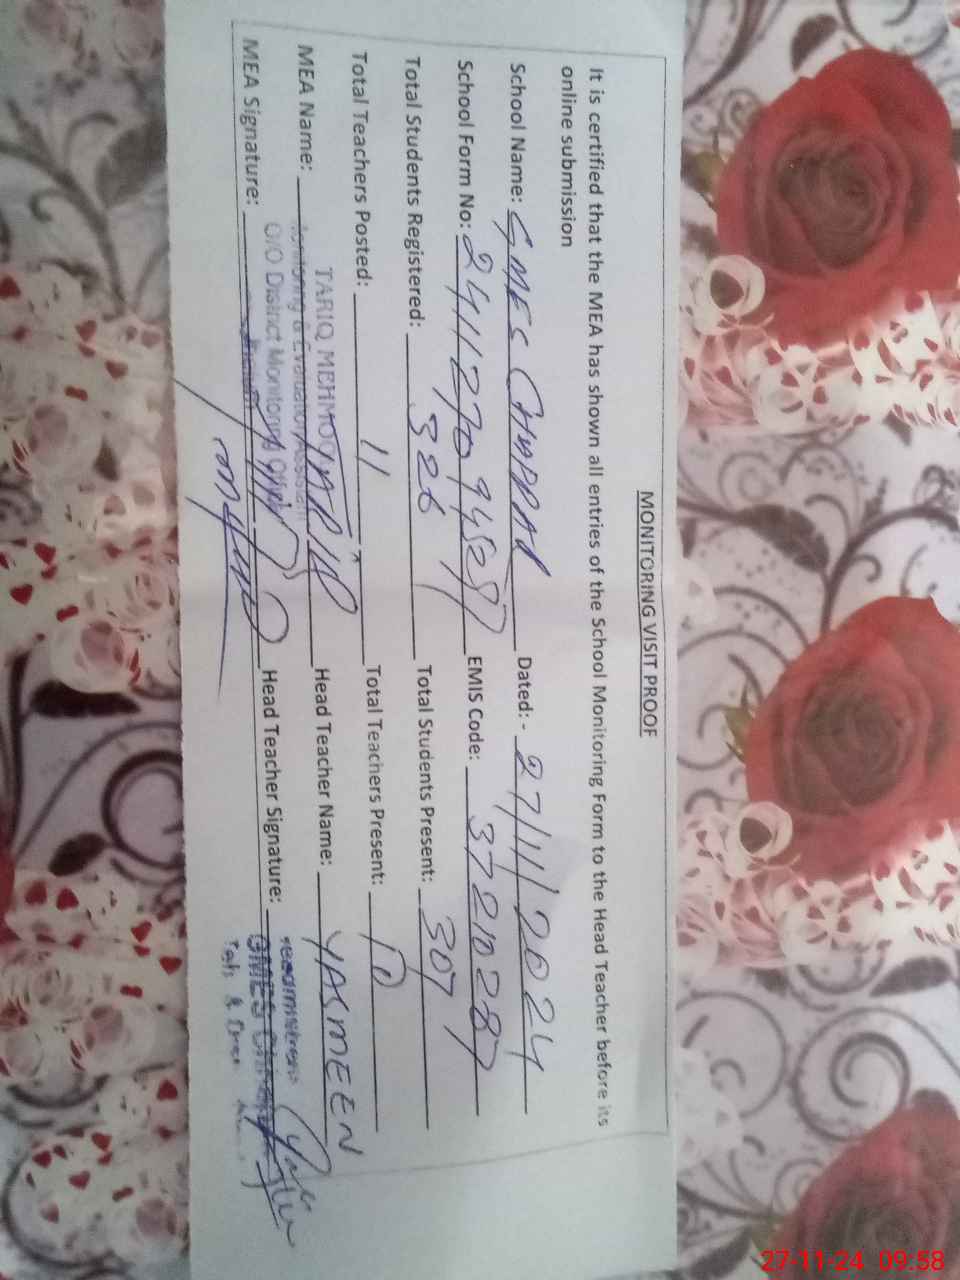 MONITORING VISIT PROOF
It is certified that the MEA has shown all entries of the School Monitoring Form to the Head Teacher before its
online submission
School Name: GMES CHAPPAR Dated: - 27/11/2024
School Form No: EMIS Code: 37210289
Total Students Registered: 326 Total Students Present: 307
Total Teachers Posted: 11 Total Teachers Present: 10
MEA Name: TARIQ Head Teacher Name: YASMEEN
TARIQ MEHMOOD
Monitoring & Evaluation Assistant
O/O District Monitoring Officer
MEA Signature: Head Teacher Signature:
Headmistress
GMES
27-11-24 09:58